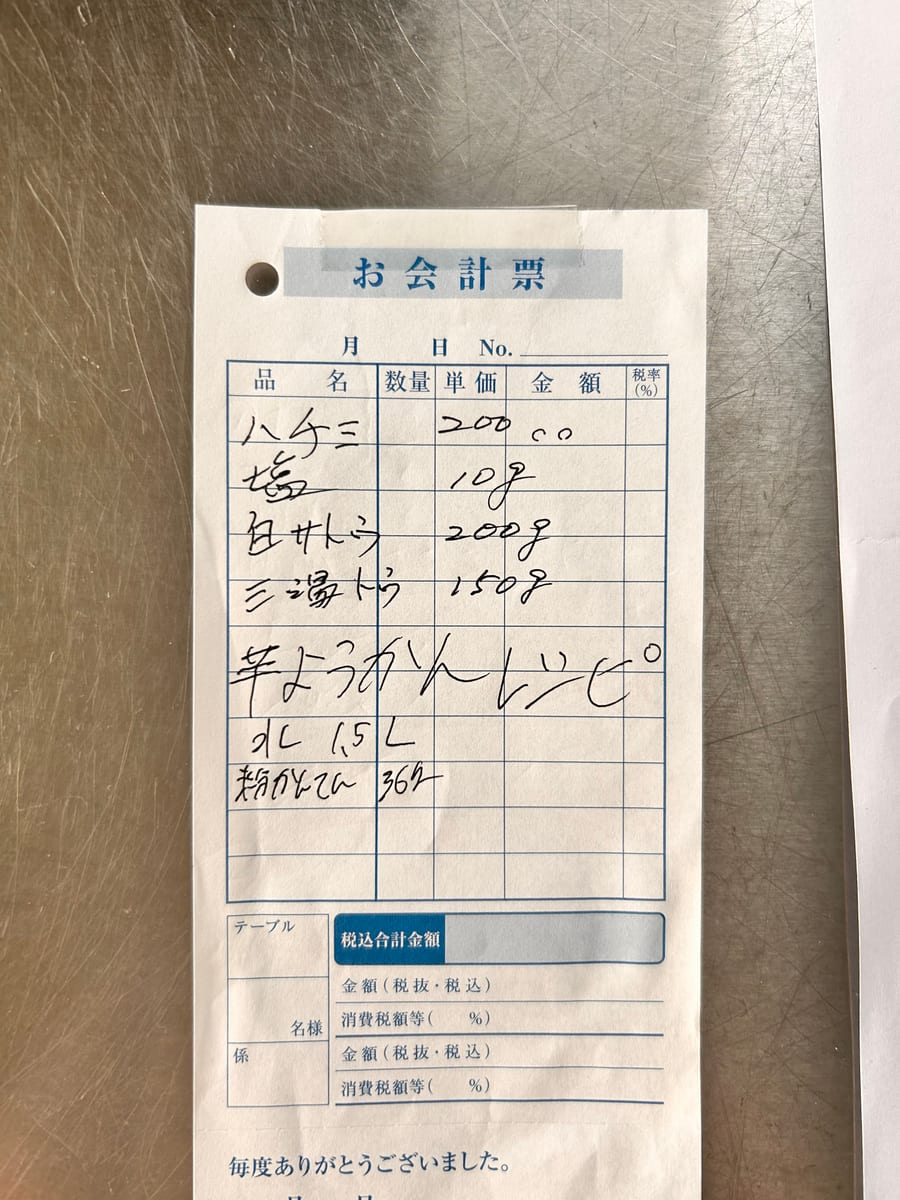 お会計票
月 日 No.
品名 数量 単価 金額 税率(%)
ハチミ 200cc
塩 10g
白サトウ 200g
三温トウ 150g
芋ようかんレシピ
水 1.5L
粉かんてん 36g
テーブル
税込合計金額
金額(税抜・税込)
名様
消費税額等( %)
係
金額(税抜・税込)
消費税額等( %)
毎度ありがとうございました。
月 日